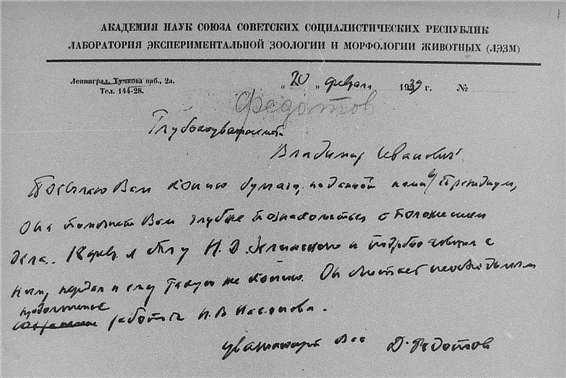 АКАДЕМИЯ НАУК СОЮЗА СОВЕТСКИХ СОЦИАЛИСТИЧЕСКИХ РЕСПУБЛИК
ЛАБОРАТОРИЯ ЭКСПЕРИМЕНТАЛЬНОЙ ЗООЛОГИИ И МОРФОЛОГИИ ЖИВОТНЫХ (ЛЭЗМ)
Ленинград, Тучкова наб., 2а.
Тел. 144-28.
„20„ февраля 1939 г. №
Федотов
Глубокоуважаемый
Владимир Иванович!
Посылаю Вам копию бумаги, поданной нами в Президиум,
Она поможет Вам глубже познакомиться с положением
дела. 18 февр. я был у Н.Д. Зелинского и подробно говорил с
ним, передал и ему такую же копию. Он считает необходимым
продолжение
работы Н.В. Насонова.
уважающий Вас Д. Федотов